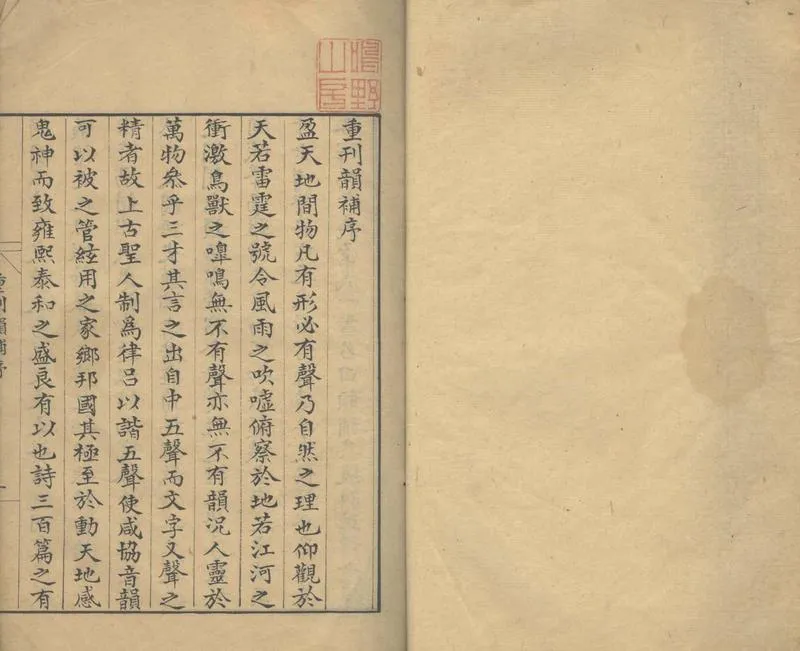 重刊韻補序
盈天地間物凡有形必有聲乃自然之理也仰觀於
天若雷霆之號令風雨之吹噓俯察於地若江河之
衝激鳥獸之嘷鳴無不有聲亦無不有韻況人靈於
萬物叅乎三才其言之出自中五聲而文字又聲之
精者故上古聖人制爲律呂以諧五聲使咸協音韻
可以被之管絃用之家鄉邦國其極至於動天地感
鬼神而致雍熙泰和之盛良有以也詩三百篇之有
重刊韻補序